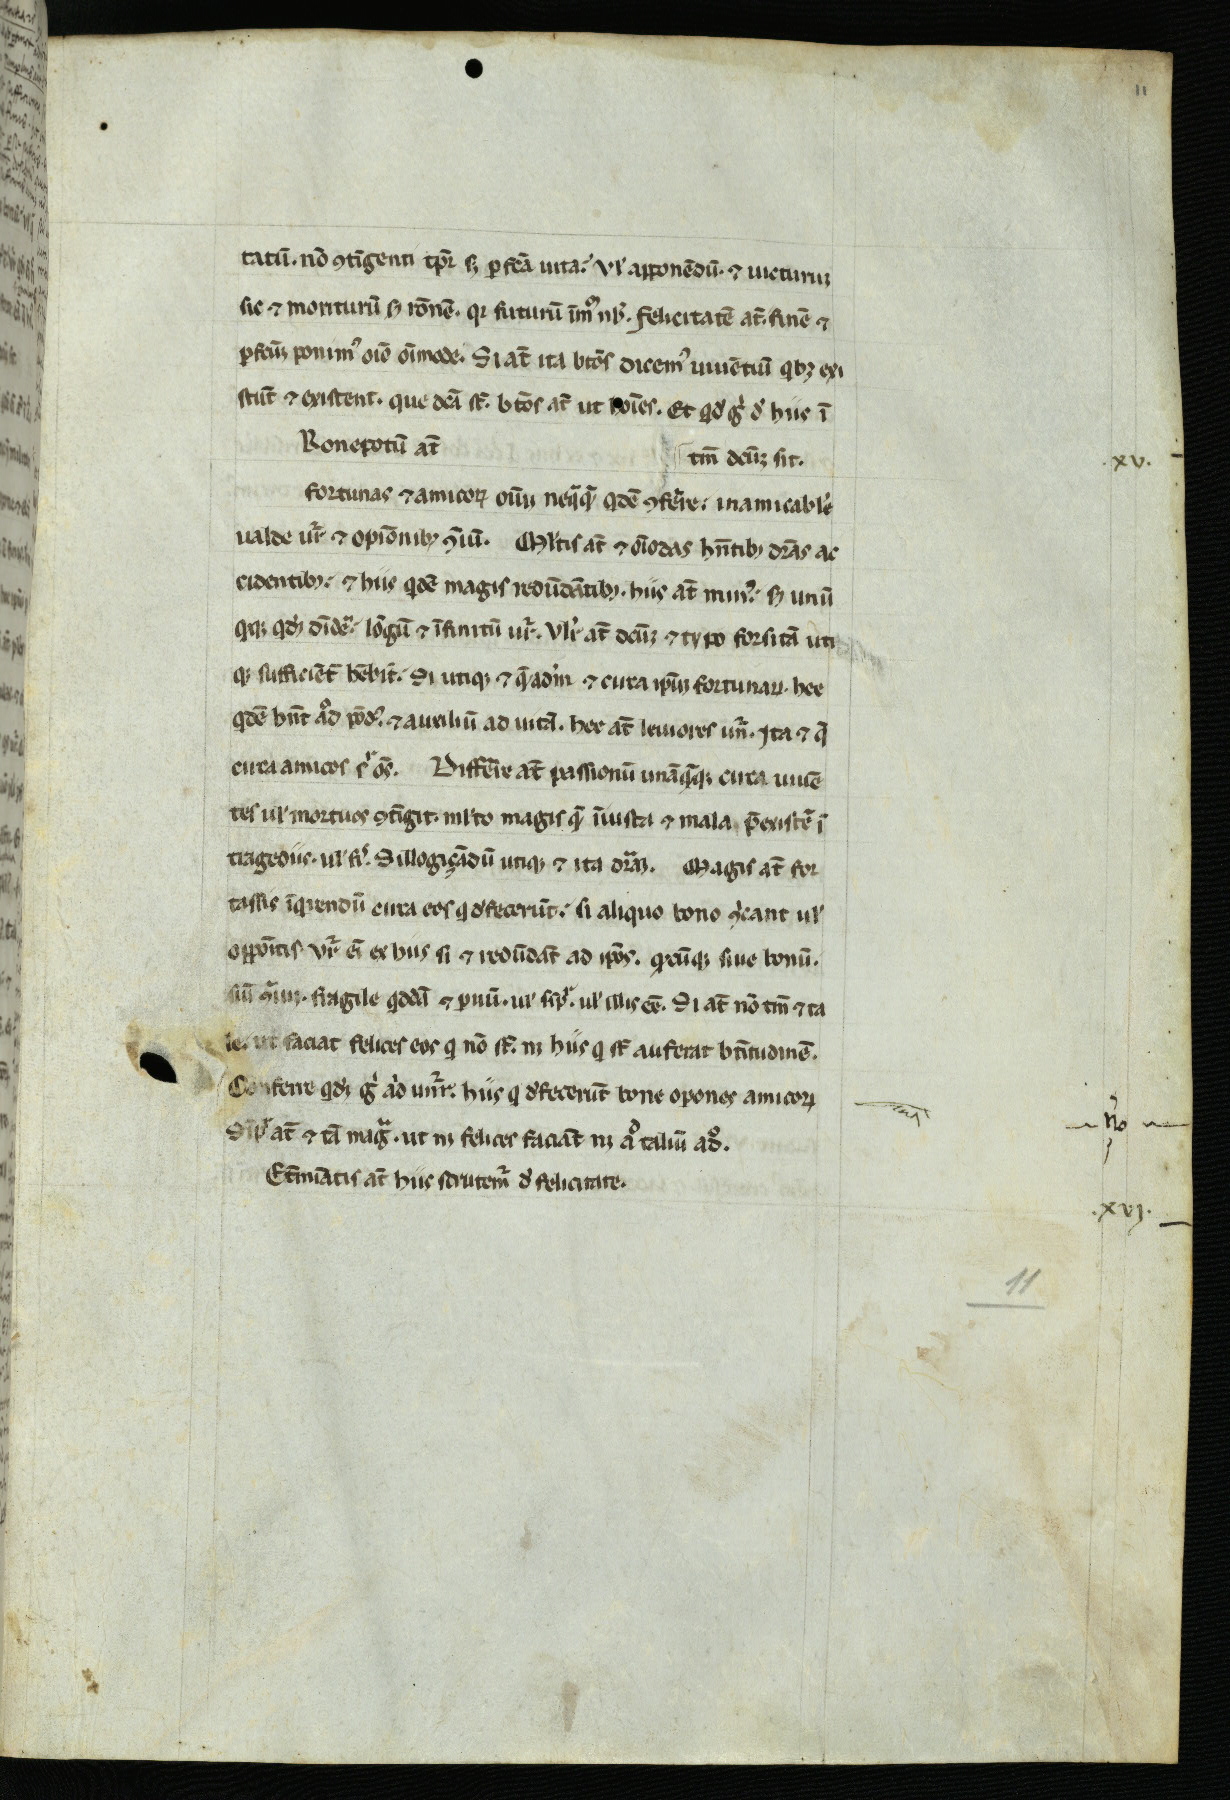 11
tatū. nō ꝯtīgenti tp̄r sꝫ ꝑfcā uita. Vl' apponēdū. ⁊ uicturuꝫ
sic ⁊ moriturū sꝫ rōnē. qr futurū īm⁹ nb'. felicitatē at̄. finē ⁊
ꝑfcūꝫ ponim⁹ oīo oīmode. Si at̄ ita btōs dicem⁹ uiuētiū qbꝫ exi
stūt ⁊ existent. que dcā st̄. btōs at̄ ut hoīes. Et qd' g̊ d' hiis ī
Ronepotū at̄ tm̄ dcūꝫ sit.
.xv.
fortunas ⁊ amicoꝝ oīuꝫ neq̄q̄ qdē ꝯferre. inamicabile
ualde ur̄ ⁊ opīonibꝫ ꝯ̄iū. Ml'tis at̄ ⁊ oīodas hn̄tibꝫ dr̄as ac
cidentibꝫ. ⁊ hiis qdē magis redūdātibꝫ. hiis at̄ min⁹. sꝫ unū
qꝫqꝫ qdꝫ diuide. lōgū ⁊ īfinitū ur̄. Vlr' at̄ dcūꝫ ⁊ typo forsitā uti
qꝫ sufficiēt hēbit. Si utiqꝫ ⁊ q̄adm̄ ⁊ circa ipm̄ fortunaꝝ. hec
qdē hn̄t aꝺ pōd'. ⁊ auxiliū ad uitā. hec at̄ leuiores un̄r. Ita ⁊ q̄
circa amicos oēs. Differre at̄ passionū unāq̄qꝫ circa uiuē
tes ul' mortuos ꝯtīgit. ml'to magis q̄ īiusta ⁊ mala p̄existē ī
tragediis. ul' fi'. Sillogiçādū utiqꝫ ⁊ ita dr̄aꝫ. Magis at̄ for
tassis īquirendū circa eos q d'fecerūt. si aliquo bono ꝯ̄icant ul'
oppōitis. Vr̄ eī ex hiis si ⁊ redūdāt ad ipōs. qꝺcūqꝫ siue bonū.
siū ꝯ̄iuꝫ. fragile qddā ⁊ ꝑuū. ul' simpl'. ul' illis ēē. Si at̄ nō tm̄ ⁊ ta
le. ut faciat felices eos q nō st̄. nꝫ hiis q st̄ auferat btītudinē.
Conferre qdꝫ g̊ aꝺ un̄r. hiis q d'fecerūt bone opones amicoꝝ
Sil'r at̄ ⁊ tā mag. ut nꝫ felices faciāt nꝫ a⁰ taliū ad.
no
Et̄miātis at̄ hiis scrutem̄ d' felicitate.
.xvj.
11